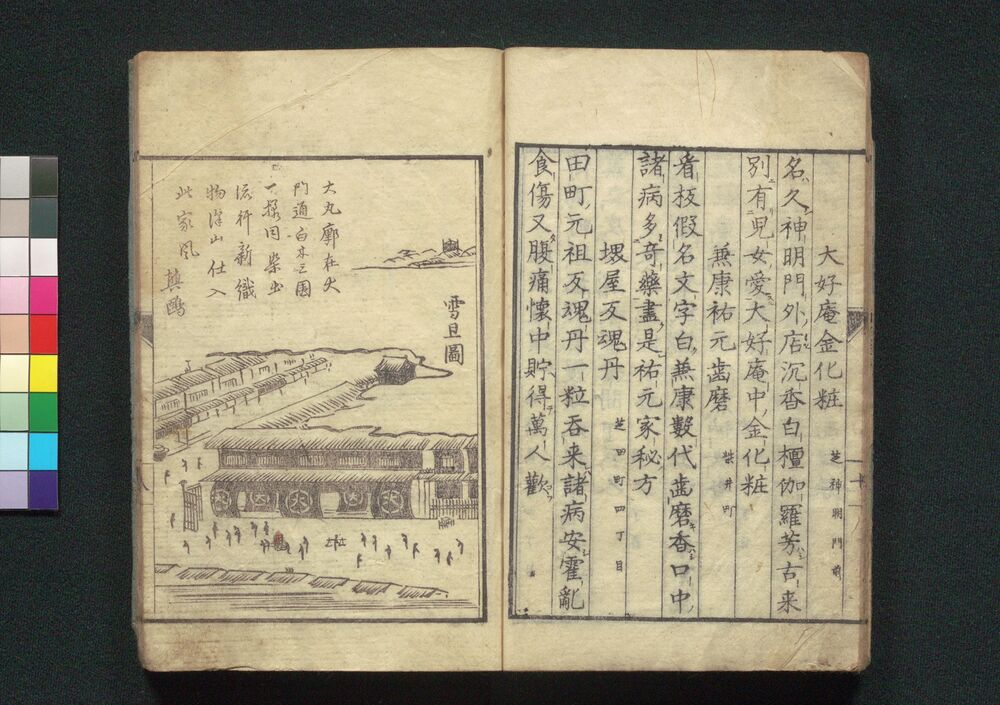 大好庵金化粧 芝神明門前
名久神明門外店沉香白檀伽羅芳古来
別有兒女愛大好庵中金化粧
兼康祐元歯磨 柴井町
看板假名文字白兼康數代歯磨香口中
諸病多奇藥盡是祐元家秘方
堺屋反魂丹 芝田町四丁目
田町元祖反魂丹一粒吞来諸病安霍亂
食傷又腹痛懷中貯得萬人歡
大丸廓在大
門通白木三國
一様同柴出
流行新織
物澤山仕入
此家風
雪旦圖